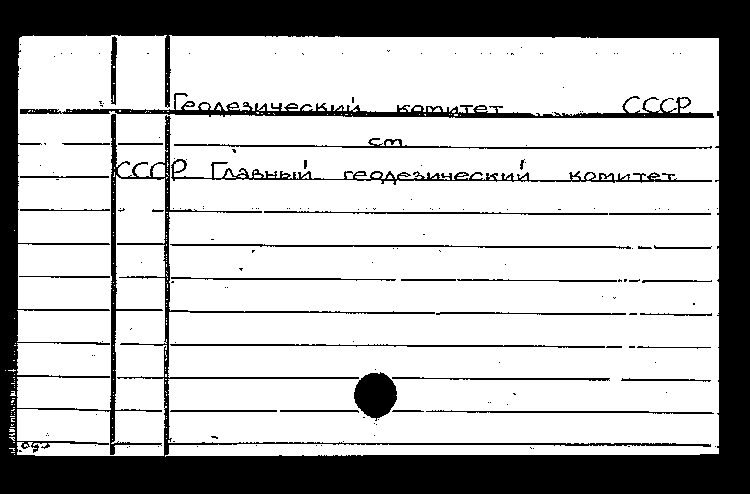 Геодезический комитет СССР
см.
СССР Главный геодезический комитет